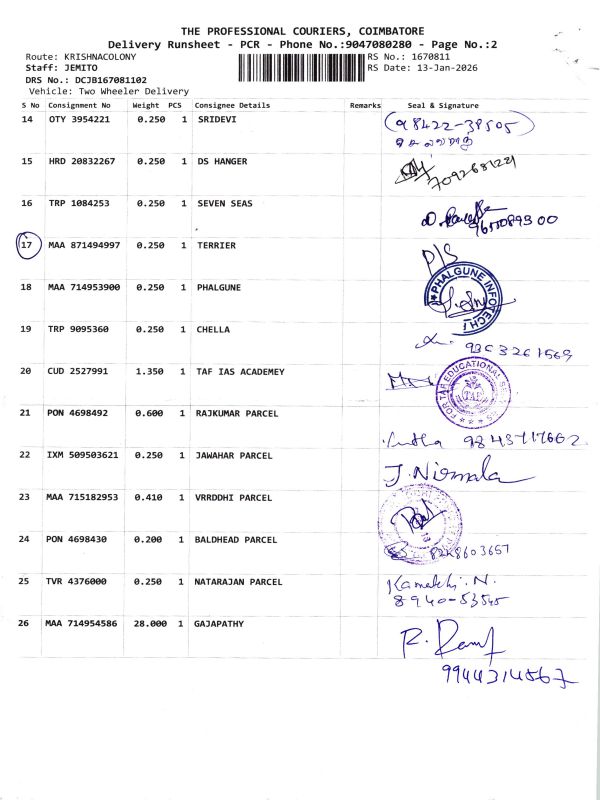 THE PROFESSIONAL COURIERS, COIMBATORE
Delivery Runsheet - PCR - Phone No.:9047080280 - Page No.:2
Route: KRISHNACOLONY RS No.: 1670811
Staff: JEMITO RS Date: 13-Jan-2026
DRS No.: DCJB167081102
Vehicle: Two Wheeler Delivery
S No Consignment No Weight PCS Consignee Details Remarks Seal & Signature
14 OTY 3954221 0.250 1 SRIDEVI (98422-38505)
15 HRD 20832267 0.250 1 DS HANGER
16 TRP 1084253 0.250 1 SEVEN SEAS
17 MAA 871494997 0.250 1 TERRIER P/S
18 MAA 714953900 0.250 1 PHALGUNE PHALGUNE INFOTECH
19 TRP 9095360 0.250 1 CHELLA
20 CUD 2527991 1.350 1 TAF IAS ACADEMEY FOR TAF EDUCATIONAL
21 PON 4698492 0.600 1 RAJKUMAR PARCEL
22 IXM 509503621 0.250 1 JAWAHAR PARCEL J. Nirmala
23 MAA 715182953 0.410 1 VRRDDHI PARCEL
24 PON 4698430 0.200 1 BALDHEAD PARCEL 8248603657
25 TVR 4376000 0.250 1 NATARAJAN PARCEL Kamatchi. N.
8940-53545
26 MAA 714954586 28.000 1 GAJAPATHY
9944314567